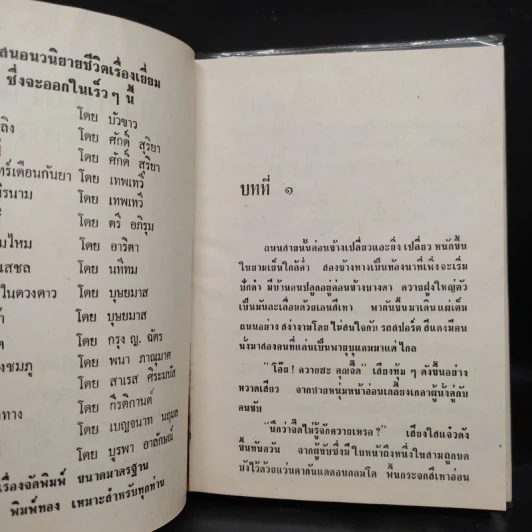 สนอนวนิยายชีวิตเรื่องเยี่ยม
ซึ่งจะออกในเร็วๆ นี้
โดย บัวขาว
ลิง โดย ศักดิ์ สุริยา
โดย ศักดิ์ สุริยา
ทร์เดือนกันยา โดย เทพเทวี
รินาม โดย เทพเทวี
โดย ตรี อภิรุม
มไหม โดย อาริตา
นสชล โดย นทีทม
ในดวงดาว โดย บุษยมาส
โดย บุษยมาส
โดย กรุง ญ. ฉัตร
งชมภู โดย พนา ภาณุมาศ
โดย สาเรส ศิระมนัส
โดย กีรติกานต์
ทาง โดย เบญจนาท นฤมล
โดย บูรพา อาลักษณ์
เรื่องจัดพิมพ์ ขนาดมาตรฐาน
พิมพ์ทอง เหมาะสำหรับทุกท่าน
บทที่ ๑
ถนนสายนั้นค่อนข้างเปลี่ยวและยิ่ง เปลี่ยว หนักขึ้น
ในยามเย็นใกล้ค่ำ สองข้างทางเป็นท้องนาที่เพิ่งจะเริ่ม
ปักดำ มีบ้านคนปลูกอยู่ค่อนข้างบางตา ควายฝูงใหญ่ตัว
เป็นมันละเลื่อมด้วยเลนสีเทา พากันขึ้นมาเดินแผ่เต็ม
ถนนอย่าง สง่างามโดย ไม่สนใจกับ รถสปอร์ต สีแดงมีคน
นั่งมาสองคนที่แล่นเป็นพายุบุแคมมาแต่ไกล
"โอ๊ย! ควายฮะ คุณจี๊ด" เสียงทุ้ม ๆ ดังขึ้นอย่าง
หวาดเสียว จากชายหนุ่มหน้าอ่อนเกลี้ยงเกลาผู้นั่งคู่กับ
คนขับ
"นึกว่าจี๊ดไม่รู้จักควายเหรอ?" เสียงใสแจ๋วดัง
ขึ้นทันควัน จากผู้ขับซึ่งมี ใบหน้าถึงหนึ่งในสามถูกบด
บังไว้ด้วยแว่นตากันแดดอันกลมโต พื้นกระจกสีเทาอ่อน